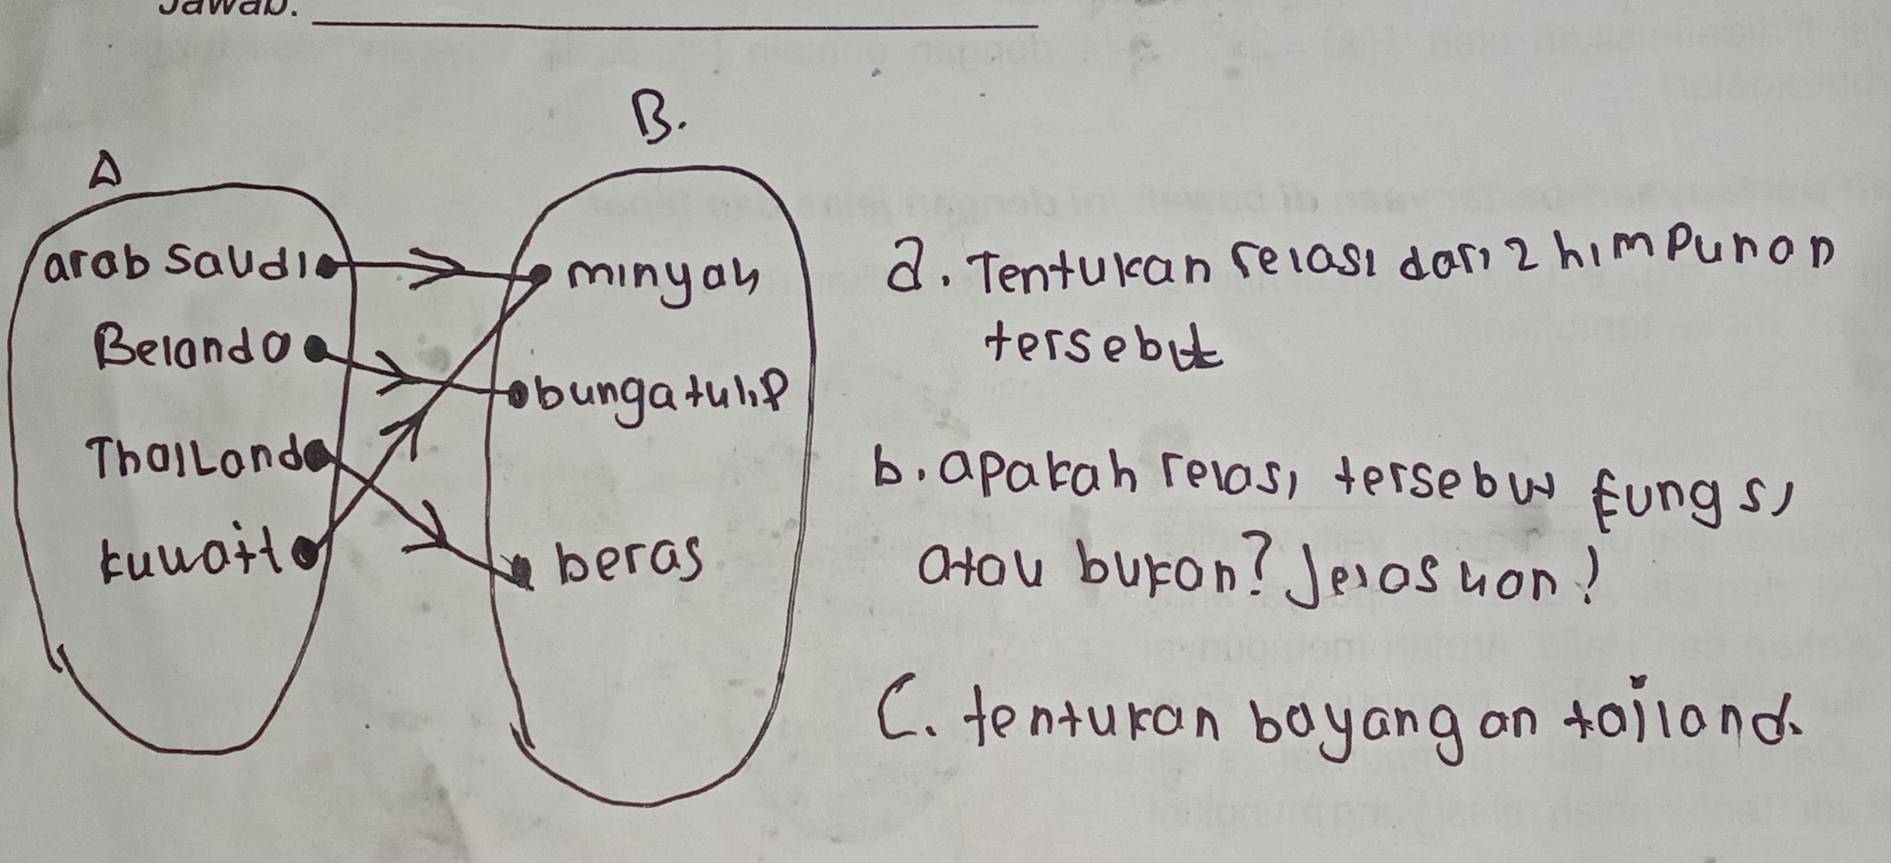 Jawab:
A
B.
arab saudi
Belanda
Thailand
kuwait
minyak
bunga tulip
beras
a. Tentukan relasi dari 2 himpunan
tersebut
b. apakah relasi tersebut fungsi
atau bukan? Jelaskan!
C. tentukan bayangan tailand.